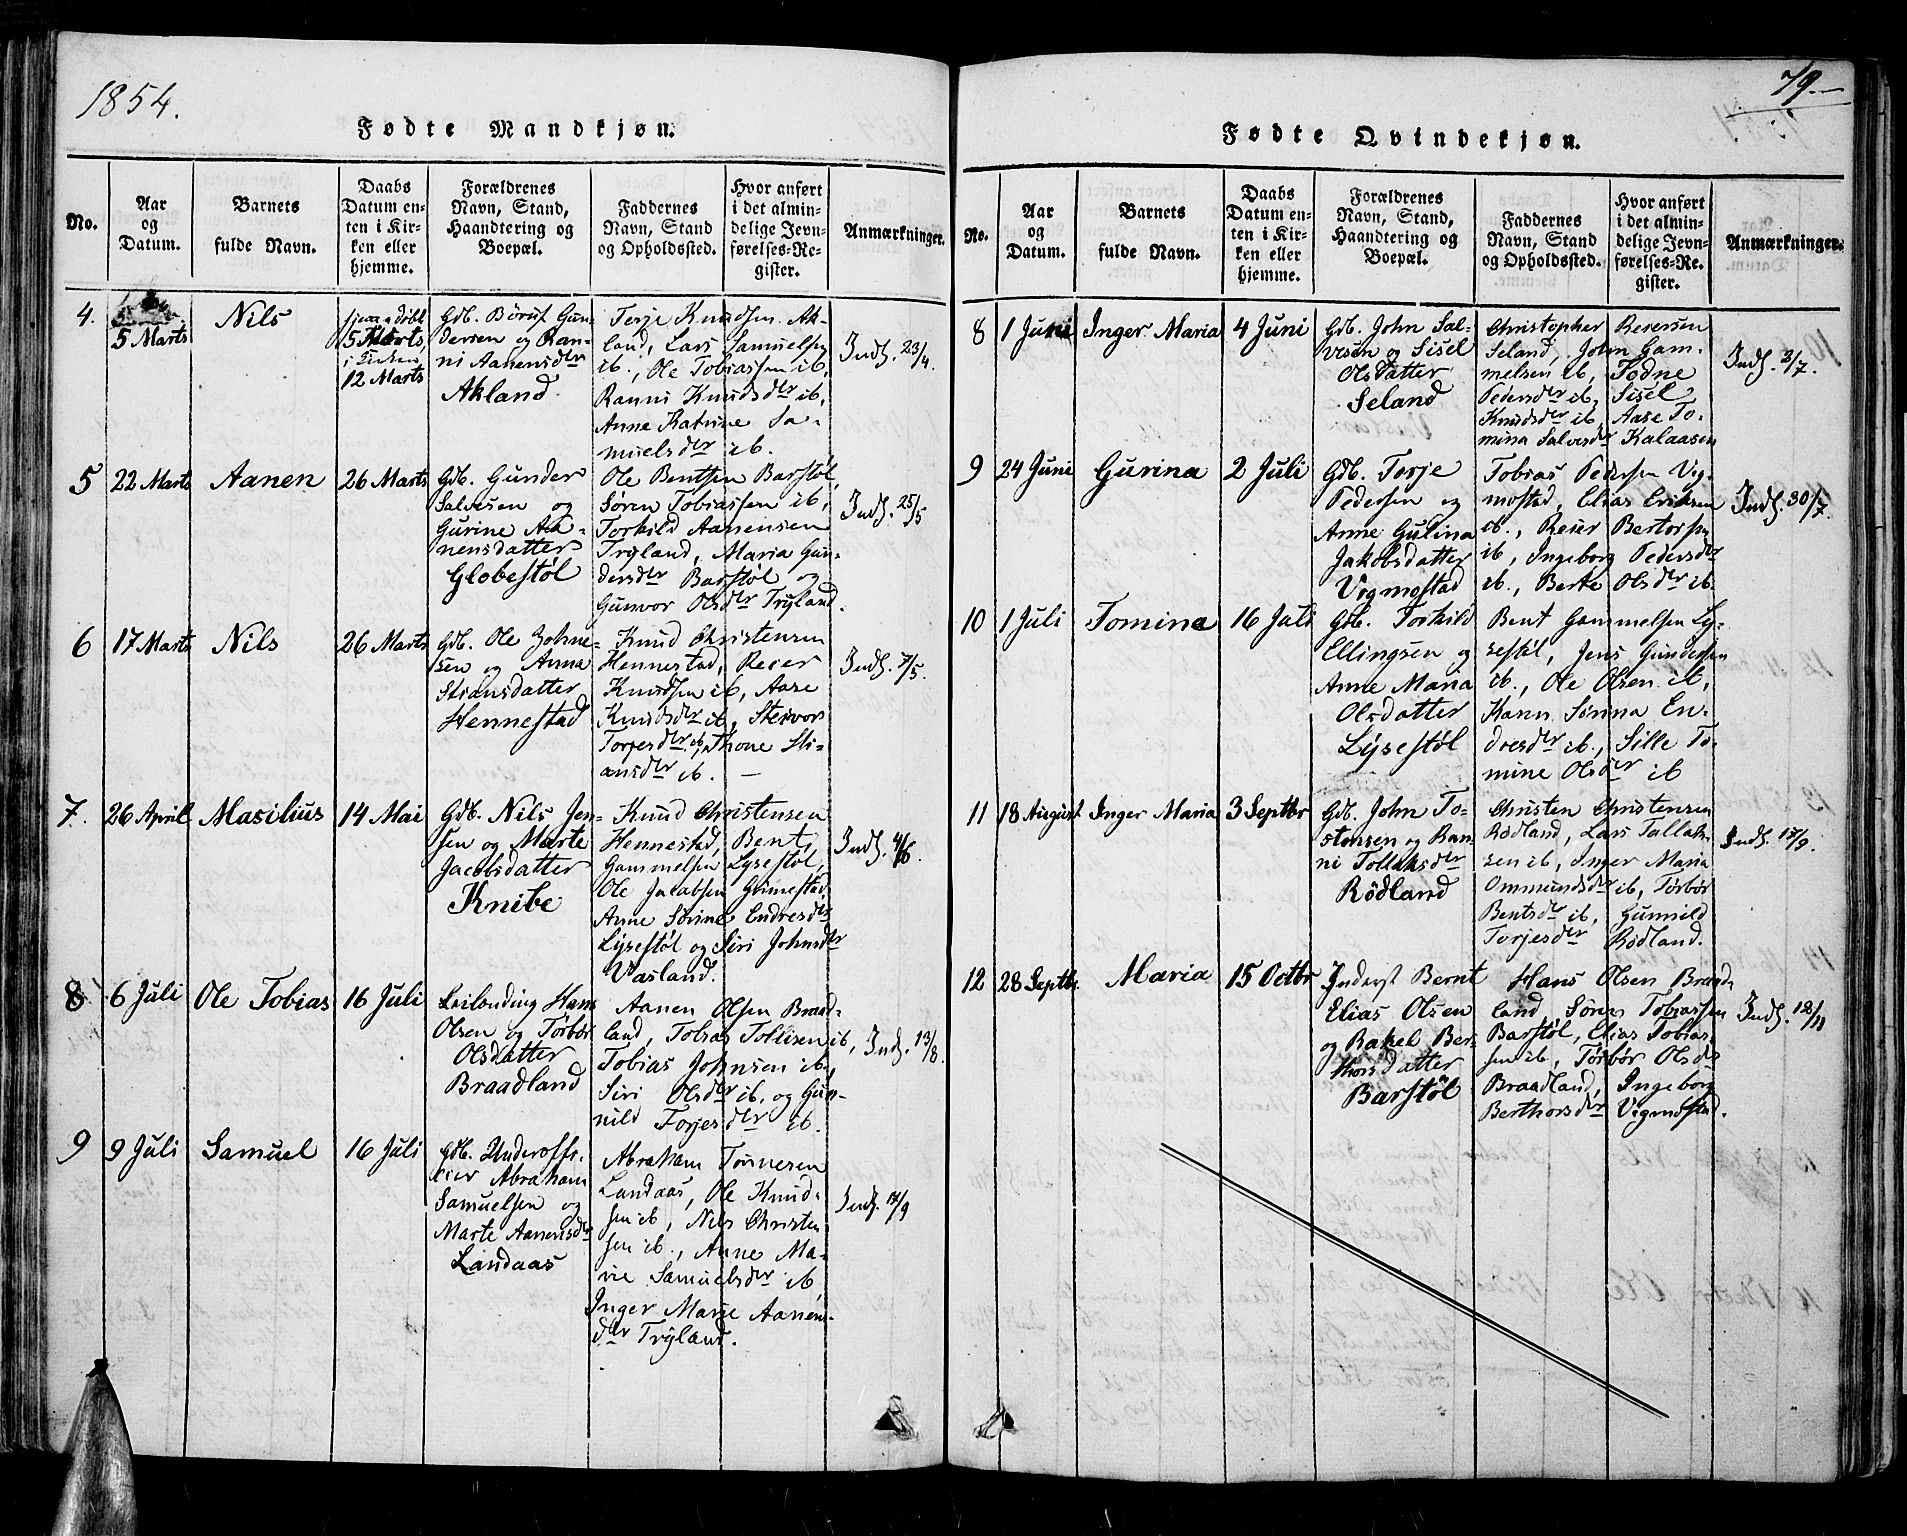 1854.
79.
Fødte Mandkjøn.
No.
Aar
og
Datum.
Barnets
fulde Navn.
Daabs
Datum en-
ten i Kir-
ken eller
hjemme.
Forældrenes
Navn, Stand,
Haandtering og
Boepæl.
Faddernes
Navn, Stand
og Opholdssted.
Hvor anført
i det almin-
delige Jevn-
førelses-Re-
gister.
Anmærkninger.
4.
5 Marts
Nils
hjemmedøbt
5 Marts
i Kirken
12 Marts
Gdb. Børuf Gun-
dersen og Ran-
ni Aanensdtr
Akland
Terje Knudsen Ak-
land, Lars Samuelsen
ib., Ole Tobiassen ib,
Ranni Knudsdtr ib,
Anne Katrine Sa-
muelsdtr ib.
Inds. 23/4.
5
22 Marts
Aanen
26 Marts
Gdb. Gunder
Salvesen og
Gurine Aa-
nensdatter
Globestøl
Ole Bentsen Barstøl,
Søren Tobiassen ib,
Torkild Aanensen
Tryland, Maria Gun-
dersdtr Barstøl og
Gunvor Olsdtr Tryland.
Inds. 25/5
6
17 Marts
Nils
26 Marts
Gdb. Ole Johne-
sen og Anna
Stiansdatter
Hennestad
Knud Christensen
Hennestad, Reier
Knudsen ib, Aase
Knudsdtr ib, Stenvor
Torjesdtr ib, Thone Sti-
ansdtr ib. —
Inds. 7/5.
7.
26 April
Masilius
14 Mai
Gdb. Nils Jen-
sen og Marte
Jacobsdatter
Knibe
Knud Christensen
Hennestad, Bent
Gammelsen Lysestøl,
Ole Jacobsen Grimestad
Anne Sørine Endresdtr
Lysestøl og Siri Johnsdtr
Vasland.
Inds. 4/6.
8
6 Juli
Ole Tobias
16 Juli
Leilending Hans
Olsen og Tørbør
Olsdatter
Braadland
Aanen Olsen Braad-
land, Tobias Tollisen ib,
Tobias Johnsen ib,
Siri Olsdtr ib. og Gun-
nild Torjesdtr ib.
Inds. 13/8.
9
9 Juli
Samuel
16 Juli
Gdb. Underoffi-
cier Abraham
Samuelsen og
Marte Aanensdtr
Landaas
Abraham Tønnesen
Landaas, Ole Knud-
sen ib, Nils Christen
sen ib., Anne Ma-
rie Samuelsdtr ib
Inger Marie Aanens-
dtr Tryland.
Inds. 17/9
Fødte Qvindekjøn.
No.
Aar
og
Datum.
Barnets
fulde Navn.
Daabs
Datum en-
ten i Kir-
ken eller
hjemme.
Forældrenes
Navn, Stand,
Haandtering og
Boepæl.
Faddernes
Navn, Stand
og Opholdssted.
Hvor anført
i det almin-
delige Jevn-
førelses-Re-
gister.
Anmærkninger.
8
1 Juni
Inger Maria
4 Juni
Gdb. John Sal-
vesen og Sisel
Olsdatter
Seland
Christopher Reiersen
Seland, John Gam-
melsen ib, Todne
Pedersdtr ib, Sisel
Knudsdtr ib, Aase To-
mina Salvesdtr Kalaasen
Inds. 3/7.
9
24 Juni
Gurina
2 Juli
Gdb. Torje
Pedersen og
Anne Gulina
Jakobsdatter
Vigmostad
Tobias Pedersen Vig-
mostad, Elias Eriksen
ib., Reier Bertorsen
ib, Ingeborg Pedersdtr
ib., Berte Olsdtr ib.
Inds. 30/7.
10
1 Juli
Tomine
16 Juli
Gdb. Torkild
Ellingsen og
Anne Maria
Olsdatter
Lysestøl
Bent Gammelsen Ly-
sestøl, Jens Gundersen
ib., Ole Olsen ib,
Karen Sørina En-
dresdtr ib., Sille To-
mine Olsdtr ib
11
18 August
Inger Maria
3 Septbr
Gdb. John To-
stensen og Ran-
ni Tollaksdtr
Rödland
Christen Christensen
Rødland, Lars Tallak-
sen ib, Inger Maria
Ommundsdtr ib, Tørbør
Bentsdtr ib, Gunnild
Torjesdtr Rødland.
Inds. 17/9.
12
28 Septbr.
Maria
15 Octbr
Inderst Bernt
Elias Olsen
og Rakel Ber-
thorsdatter
Barstøl
Hans Olsen Braad-
land, Søren Tobiassen
Barstøl, Elias Tobias-
sen ib, Tørbør Olsdtr
Braadland, Ingeborg
Berthorsdtr Vigmostad.
Inds. 12/11